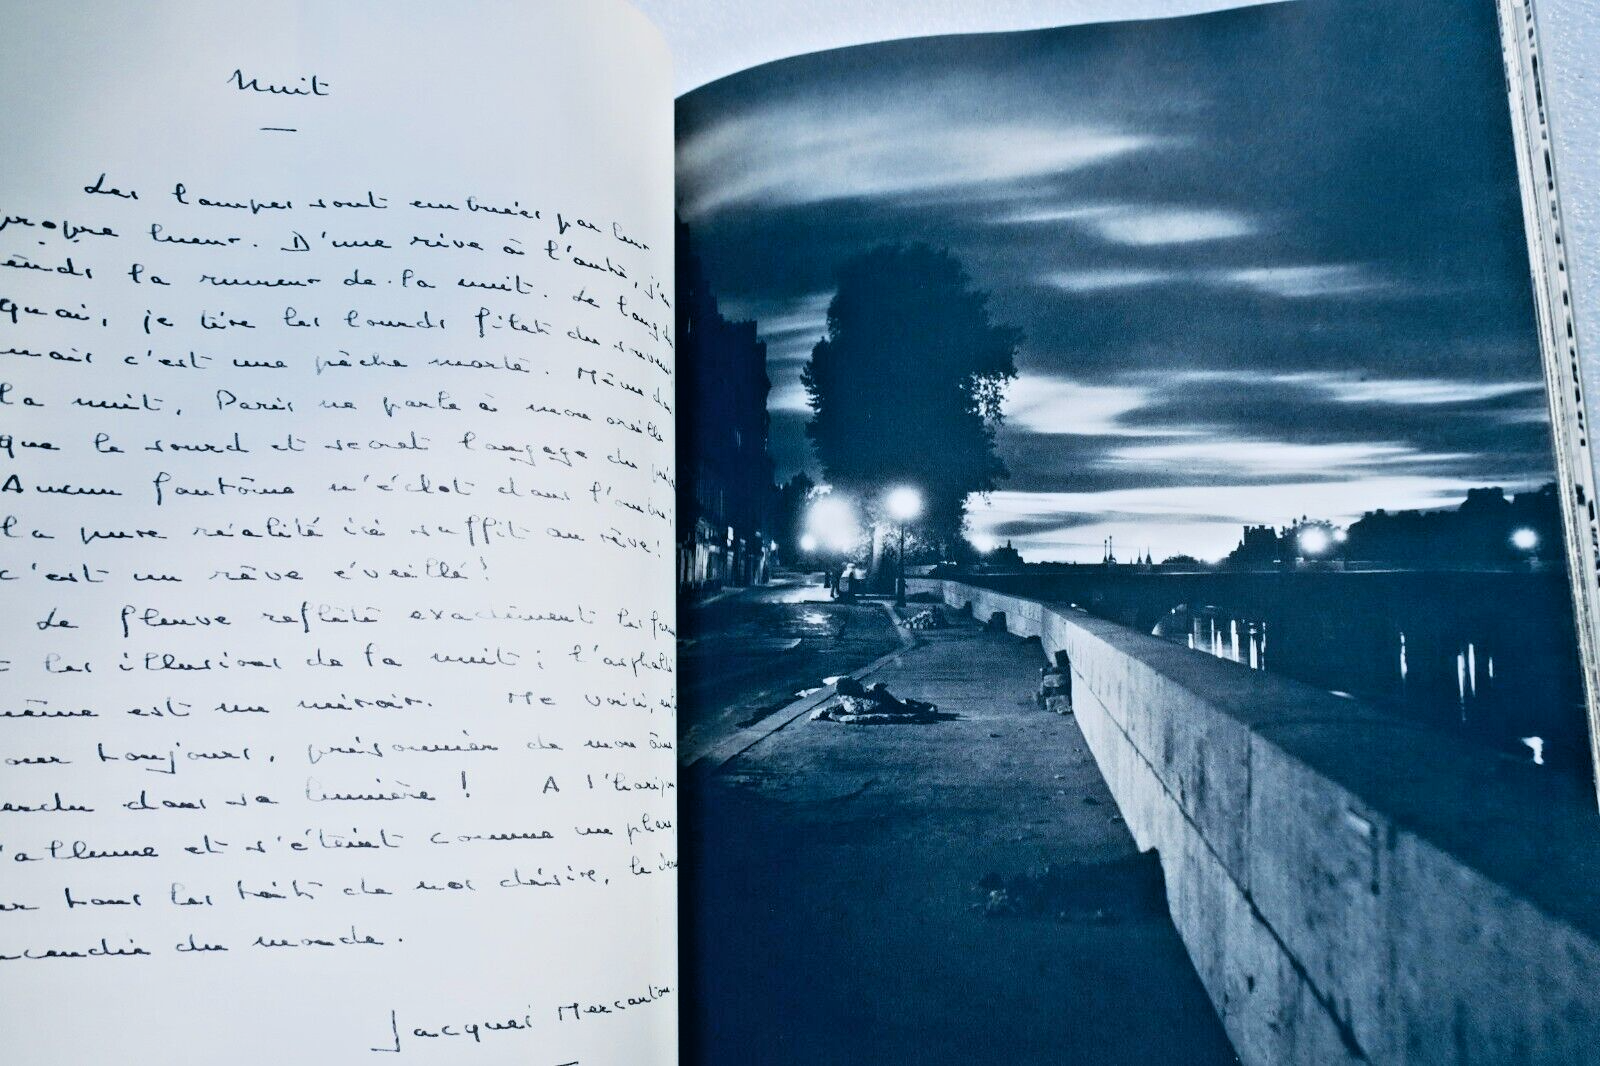 Nuit
Les lampes sont embuées par leur
propre lueur. D'une rive à l'autre, j'en
tends la rumeur de la nuit. Le long du
quai, je tire les lourds filets du souvenir
mais c'est une pêche morte. Même dans
la nuit, Paris ne parle à mon oreille
que le sourd et secret langage du
Aucun fantôme n'éclot dans l'ombre,
la pure réalité ici suffit au rêve :
c'est un rêve éveillé !
Le fleuve reflète exactement les
et les illusions de la nuit ; l'asphalte
même est un miroir. Me voici,
pour toujours, prisonnier de mon âme
dans sa lumière ! A l'horizon
s'allume et s'éteint comme un phare,
tous les toits de nos désirs, le
incendie du monde.
Jacques Mercanton